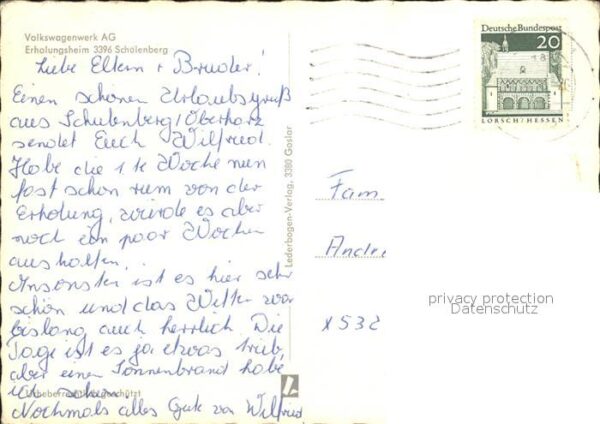 Volkswagenwerk AG
Erholungsheim 3396 Schulenberg
Liebe Eltern + Bruder!
Einen schönen Urlaubsgruß
aus Schulenberg/Oberharz
sendet Euch Wilfried.
Habe die 1te Woche nun
fast schon rum von der
Erholung, würde es aber
noch ein paar Wochen
aushalten.
Ansonsten ist es hier sehr
schön und das Wetter war
bislang auch herrlich. Die
Tage ist es ja etwas trüb,
aber einen Sonnenbrand habe
ich schon.
Nochmals alles Gute von Wilfried
Urheberrechtlich geschützt
Lederbogen-Verlag, 3380 Goslar
Deutsche Bundespost
20
LORSCH/HESSEN
Fam
Andre
X 532
privacy protection
Datenschutz